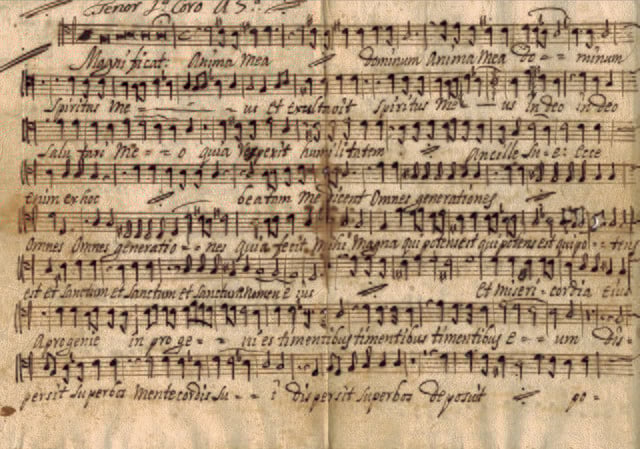 Tenor 1º Coro A 8.
Magnificat: Anima Mea Dominum Anima Mea Do - - minum
Spiritus Me - - - us et exultavit Spiritus Me - us in deo in deo
Salutari Me - - o quia respexit humilitatem Ancille Su - e: Ecce
enim ex hoc beatam Me dicent Omnes generationes
Omnes Omnes generatio - - nes quia fecit Mihi Magna qui potens est qui potens est qui po - tens
est et Sanctum et Sanctum et Sanctum nomen E ius Et miseri - cordia Eius
A progenie in proge - - ni es timentibus timentibus timentibus E - - um Dis -
persit Superbos Mente cordis Su - - i dispersit superbos deposuit po -